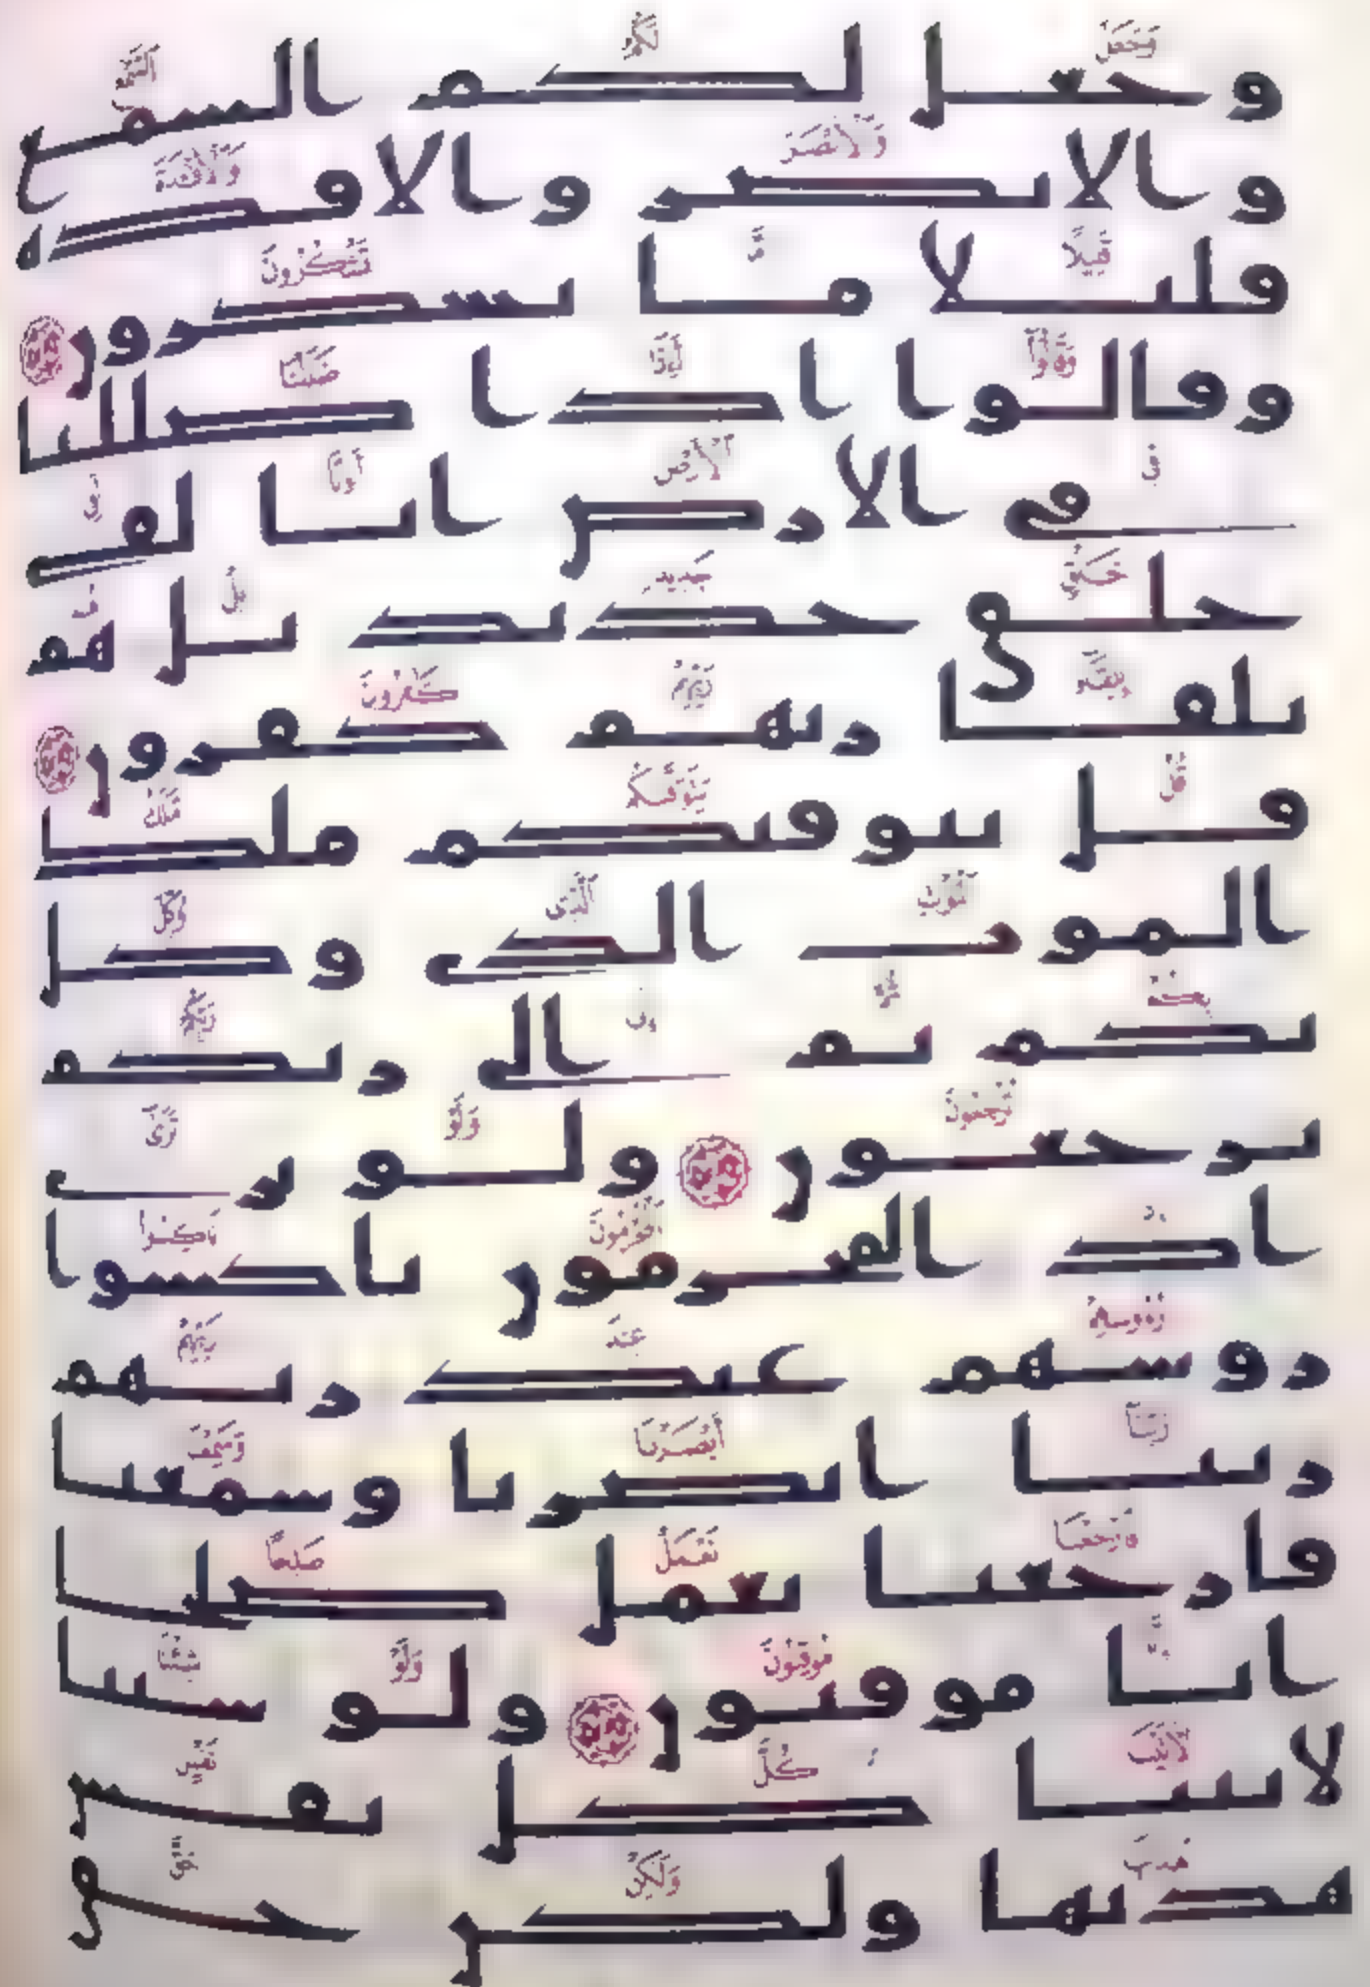 وجعل لكم السمع
والابصر والافده
قليلا ما تشكرون
وقالوا اذا ضللنا
في الارض انا لفي
خلق جديد بل هم
بلقا ربهم كفرون
قل يتوفيكم ملك
الموت الذي وكل
بكم ثم الى ربكم
ترجعون ولو ترى
اذ المجرمون ناكسوا
روسهم عند ربهم
ربنا ابصرنا وسمعنا
فارجعنا نعمل صلحا
انا موقنون ولو شينا
لاتينا كل نفس
هديها ولكن حق